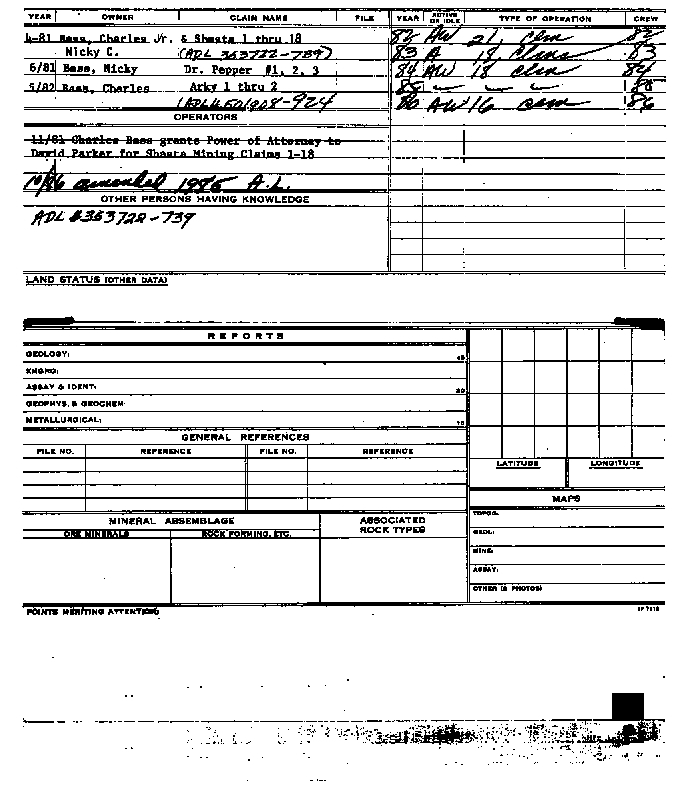 YEAR OWNER CLAIM NAME FILE YEAR ACTIVE OR IDLE TYPE OF OPERATION CREW
4-81 Bass, Charles Jr. & Shasta 1 thru 18
Nicky C. (ADL 363722-739)
6/81 Bass, Nicky Dr. Pepper #1, 2, 3
5/82 Bass, Charles Arky 1 thru 2
82 AW 21 clm 82
83 A 18 clms 83
84 AW 18 clm 84
86 AW 16 clm 86
OPERATORS
11/81 Charles Bass grants Power of Attorney to
David Parker for Shasta Mining Claims 1-18
10/86 amended 1986 A.L.
OTHER PERSONS HAVING KNOWLEDGE
ADL #363722-739
LAND STATUS (OTHER DATA)
REPORTS
GEOLOGY:
ENGRG:
ASSAY & IDENT:
GEOPHYS. & GEOCHEM:
METALLURGICAL:
GENERAL REFERENCES
FILE NO. REFERENCE FILE NO. REFERENCE
LATITUDE LONGITUDE
MAPS
TOPOG:
GEOL:
MINE:
ASSAY:
OTHER (& PHOTOS)
MINERAL ASSEMBLAGE
ORE MINERALS ROCK FORMING, ETC.
ASSOCIATED
ROCK TYPES
POINTS MERITING ATTENTION: